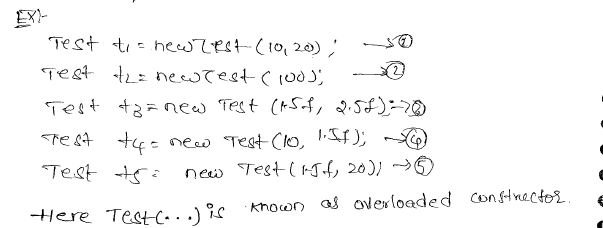 EX:-
Test t1 = new Test (10, 20); → ①
Test t2 = new Test (100); → ②
Test t3 = new Test (1.5f, 2.5f); → ③
Test t4 = new Test (10, 1.5f); → ④
Test t5 = new Test (1.5f, 20); → ⑤
Here Test(...) is known as overloaded constructor.